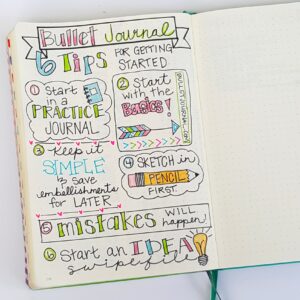 Bullet Journal
6 Tips FOR GETTING
STARTED
① Start
in a
PRACTICE
JOURNAL
② Start
with the
Basics!
③ Keep it
SIMPLE
& save
embellishments
for LATER
④ SKETCH in
PENCIL
FIRST
⑤ mistakes WILL
happen
⑥ Start an IDEA
swipe file